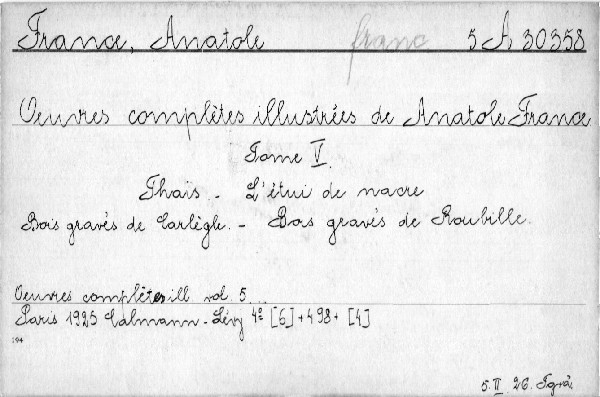 France, Anatole franc 5 A 30358
Oeuvres complètes illustrées de Anatole France
Tome V.
Thaïs. - L'étui de nacre
Bois gravés de Carlègle. - Bois gravés de Roubille.
Oeuvres complètes ill. vol. 5.
Paris 1925 Calmann-Lévy 4º [6]+498+[4]
194
5. II. 26.